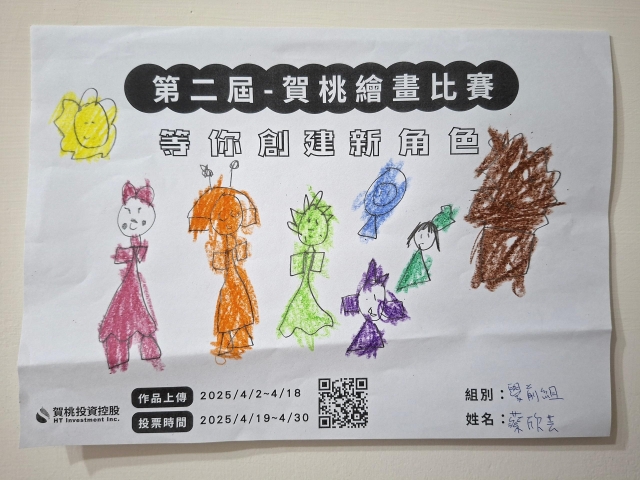 第二屆-賀桃繪畫比賽
等你創建新角色
賀桃投資控股
HT Investment Inc.
作品上傳 2025/4/2~4/18
投票時間 2025/4/19~4/30
組別：學前組
姓名：蔡欣芸